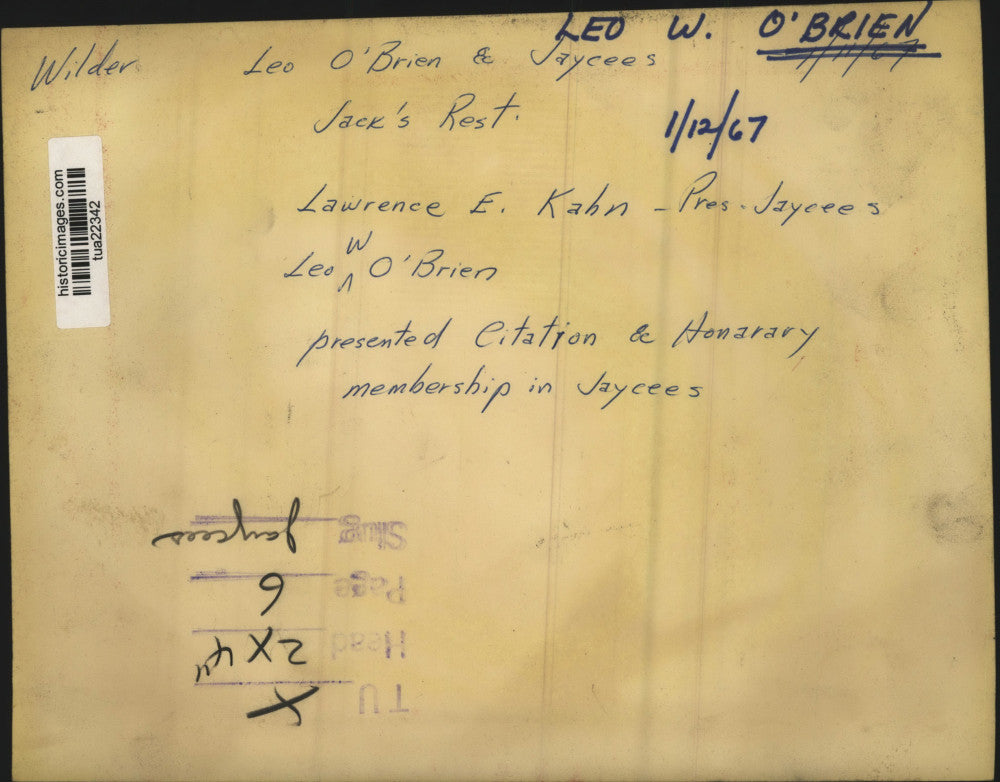 LEO W. O'BRIEN
Wilder Leo O'Brien & Jaycees 1/11/67
Jack's Rest.
1/12/67
Lawrence E. Kahn - Pres. Jaycees
Leo W O'Brien
presented Citation & Honarary
membership in Jaycees
historicimages.com
tua22342
TU X
Head 2X4"
Page 6
Slug Jaycees